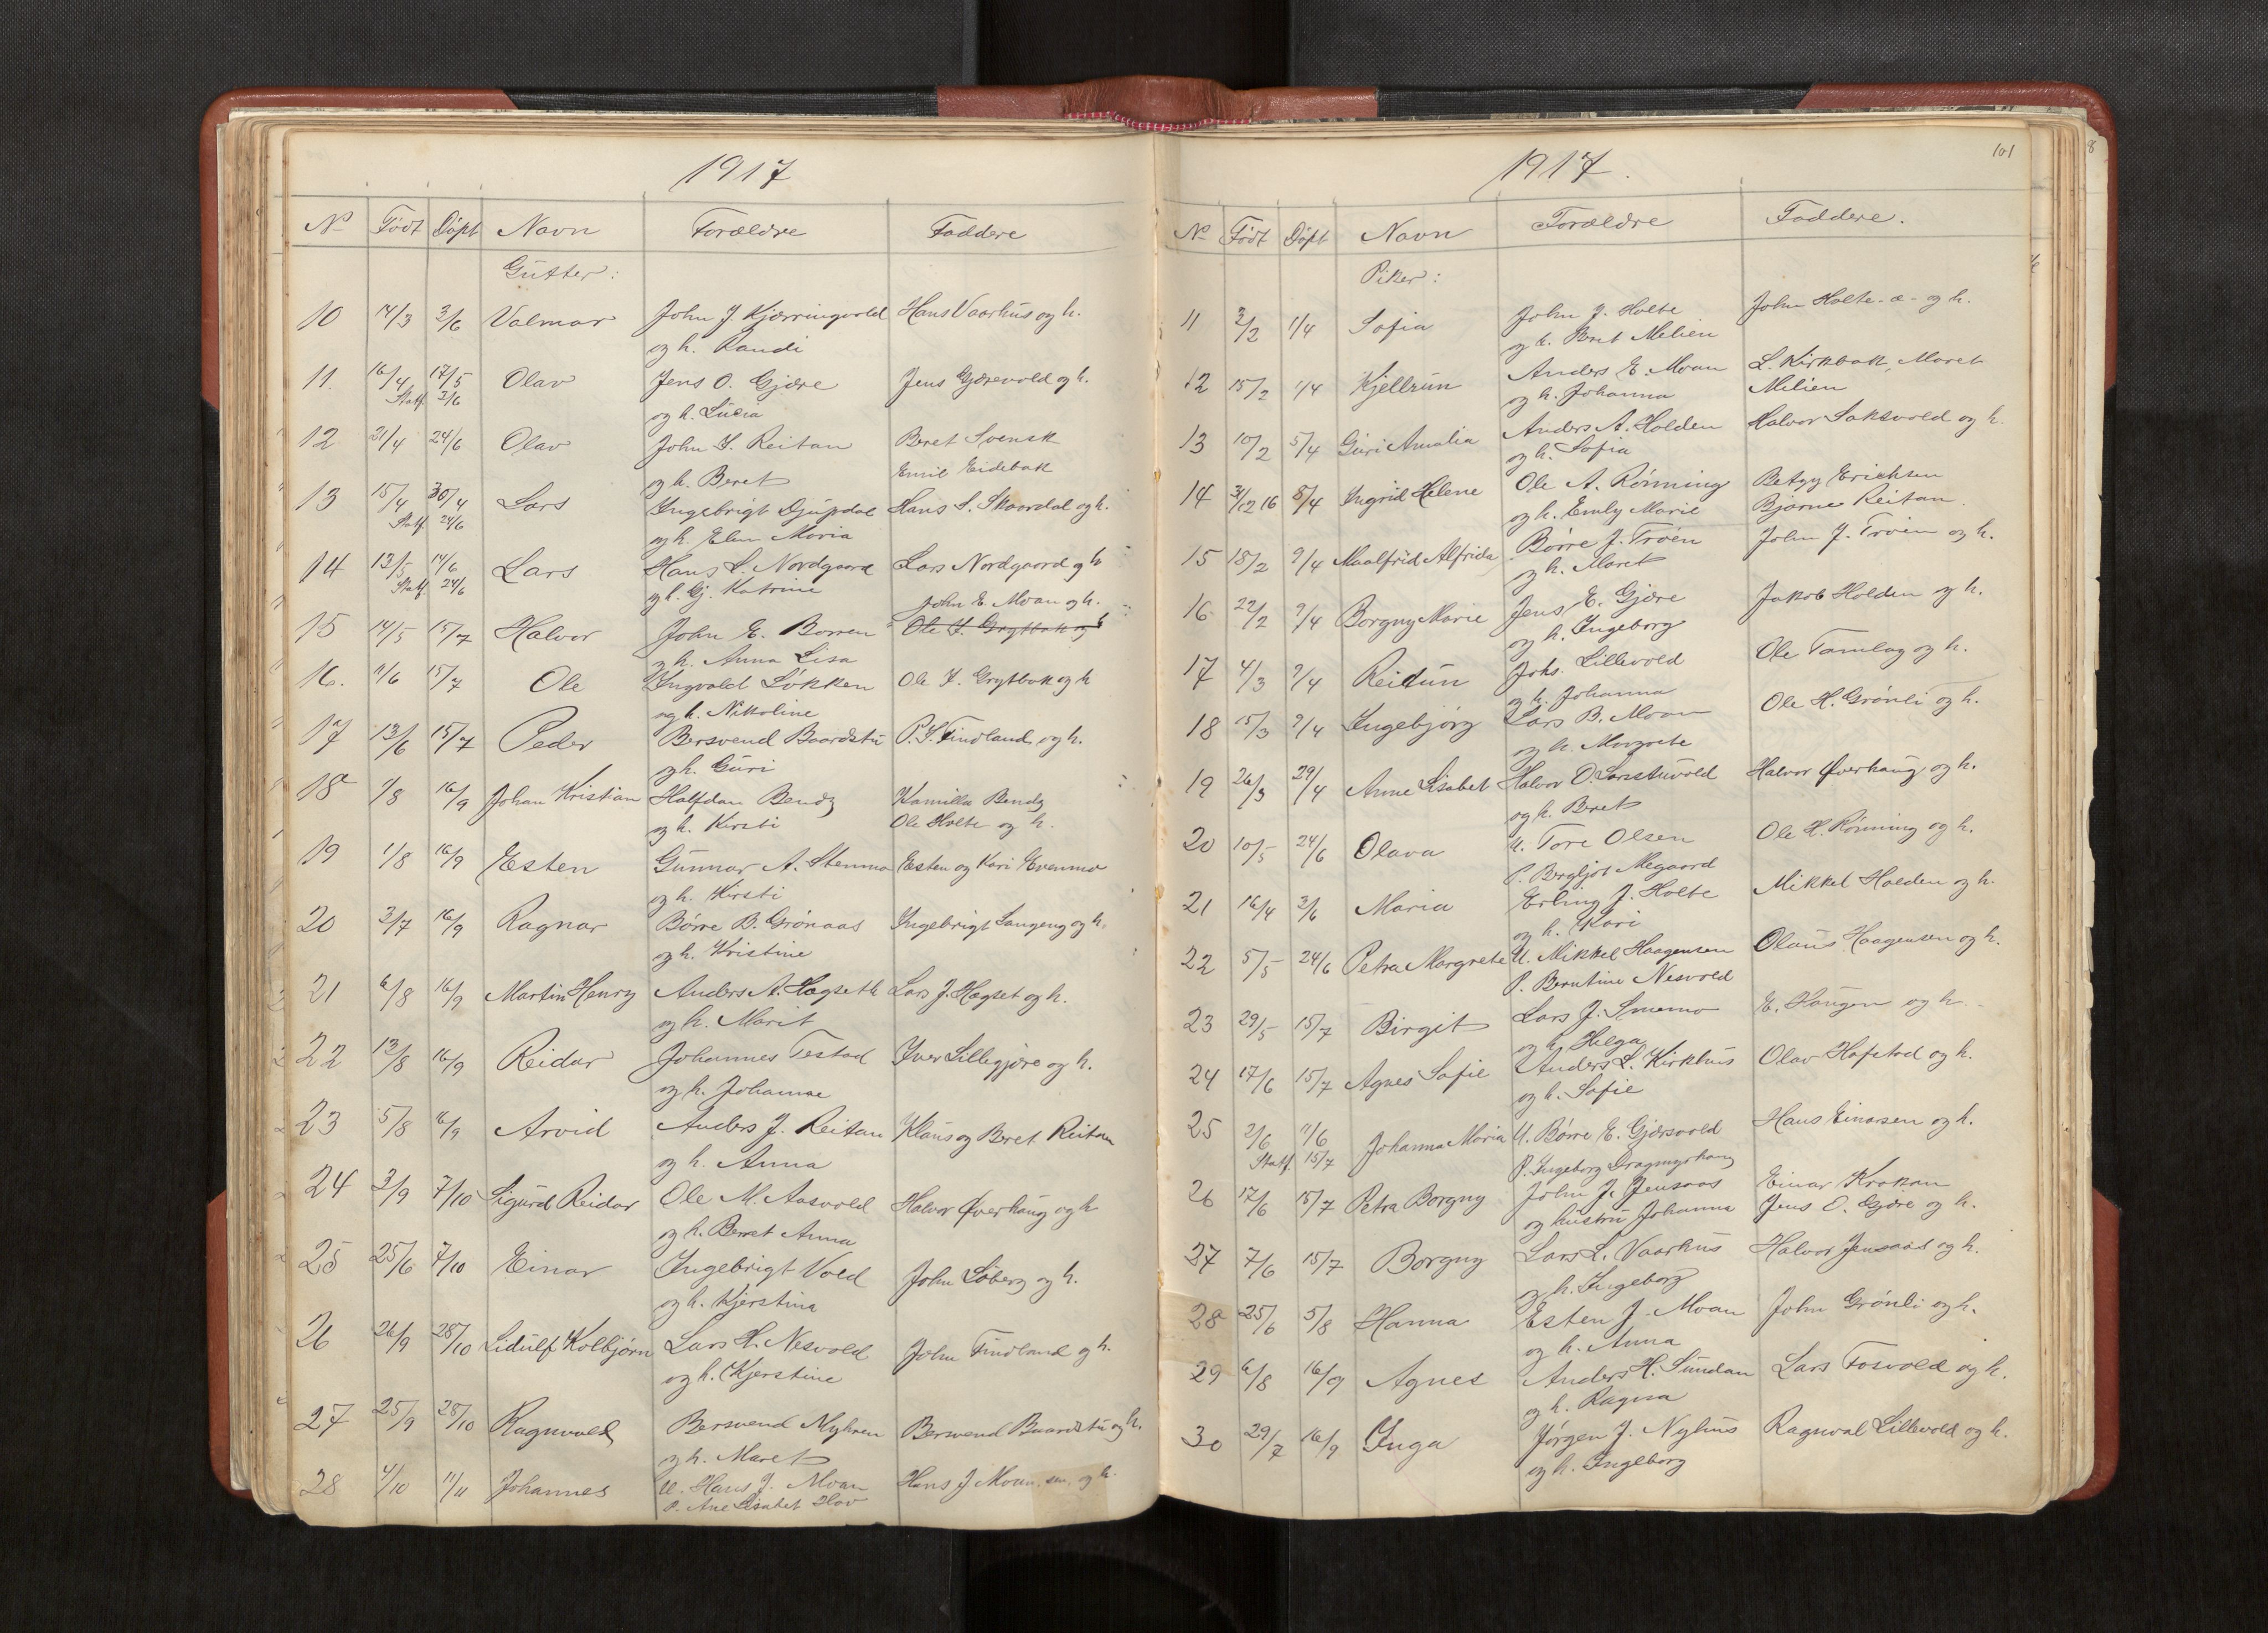 1917
No Født Døpt Navn Forældre Faddere
Gutter:
10 14/3 3/6 Valmar John J. Kjærringvold Hans Vaarhus og h.
og h. Randi
11. 16/4 17/5 Olav Jens O. Gjære Jens Gjærevold og h.
Statf. 3/6
og h. Lucia
12 21/4 24/6 Olav John S. Reitan Beret Svensk
og h. Beret Emil Eidebak
13 15/4 30/4 Lars Ingebrigt Djupdal Hans S. Skaardal og h.
Statf. 24/6
og h. Elen Maria
14 13/5 14/6 Lars Hans L. Nordgaard Lars Nordgaard og h
Statf. 24/6 og h. Gj. Katrine
John E. Moan og h.
15 14/5 15/7 Halvor John E. Borren Ole I. Grytbak og h
og h. Anna Lisa
16. 11/6 15/7 Ole Ingvald Løkken Ole I. Grytbak og h
og h. Nikoline
17 13/6 15/7 Peder Bersvend Baardstu P. S. Findland og h.
og h. Guri
18 1/8 16/9 Johan Kristian Halfdan Bendz Kamilla Bendz
og h. Kirsti Ole Holte og h.
19 1/8 16/9 Esten Gunnar A. Stenmo Esten og Kari Evenmo
og h. Kirsti
20 3/7 16/9 Ragnar Børre B. Grønaas Ingebrigt Langeng og h.
og h. Kristine
21 6/8 16/9 Martin Henry Anders A. Hægseth Lars J. Hægset og h.
og h. Marit
22 13/8 16/9 Reidar Johannes Testad Iver Lillegjære og h.
og h. Johanna
23 5/8 16/9 Arvid Anders J. Reitan Klaus og Beret Reitan
og h. Anna
24 3/9 7/10 Sigurd Reidar Ole M. Aasvold Halvor Øverhaug og h
og h. Beret Anna
25 25/6 7/10 Einar Ingebrigt Vold John Løberg og h.
og h. Kjerstina
26 26/9 28/10 Lidulf Kolbjørn Lars H. Nesvold John Findland og h.
og h. Kjerstine
27 25/9 28/10 Ragnvald Bersvend Myhren Bersvend Baardstu og h.
og h. Maret
28 4/10 11/11 Johannes U. Hans J. Moan Hans J Moan, sen. og h.
P. Ane Lisabet Hov
101
1917.
No Født Døpt Navn Forældre Faddere.
Piker:
11 3/2 1/4 Sofia John J. Holte John Holte - æ - og h.
og h. Beret Melien
12 15/2 1/4 Kjellrun Anders E. Moan L. Kirkbak, Maret
og h. Johanna Melien
13 10/2 5/4 Guri Amalia Anders A. Holden Halvor Saksvold og h.
og h. Sofia
14 31/12 16 8/4 Ingrid Helene Ole A. Rønning Betzy Erichsen
og h. Emly Marie Bjarne Reitan
15 18/2 9/4 Maalfrid Alfrida Børre J. Trøen John J. Trøen og h.
og h. Maret
16 22/2 9/4 Borgny Marie Jens E. Gjære Jakob Holden og h.
og h. Ingeborg
17 4/3 9/4 Reidun Johs. Lillevold Ole Tamlag og h.
og h. Johanna
18 15/3 9/4 Ingebjørg Lars B. Moan Ole H. Grønli og h.
og h. Margrete
19 26/3 29/4 Anne Lisabet Halvor O. Larsstuvold Halvor Øverhaug og h.
og h. Beret
20 10/5 24/6 Olava U. Tore Olsen Ole H. Rønning og h.
P. Bergljot Megaard
21 16/4 3/6 Maria Erling J. Holte Mikkel Holden og h.
og h. Kari
22 5/5 24/6 Petra Margrete U. Mikkel Haagensen Olaus Haagensen og h.
P. Berntine Nesvold
23 29/5 15/7 Birgit Lars J. Smemo E. Haugen og h.
og h. Helga
24 17/6 15/7 Agnes Sofie Anders L. Kirkhus Olav Hofstad og h.
og h. Sofie
25 2/6 11/6 Johanna Maria U. Børre E. Gjærsvold Hans Einarsen og h.
Statf. 15/7 P. Ingeborg Dragmyrhaug
26 17/6 15/7 Petra Borgny John J. Jensaas Einar Krokan
og hustru Johanna Jens E. Gjære og h.
27 7/6 15/7 Borgny Lars L. Vaarhus Halvor Jensaas og h.
og h. Ingeborg
28 25/6 5/8 Hanna Esten J. Moan John Grønli og h.
og h. Anna
29 6/8 16/9 Agnes Anders H. Sundan Lars Fosvold og h.
og h. Ragna
30 29/7 16/9 Inga Jørgen J. Nyhus Ragnval Lillevold og h.
og h. Ingeborg